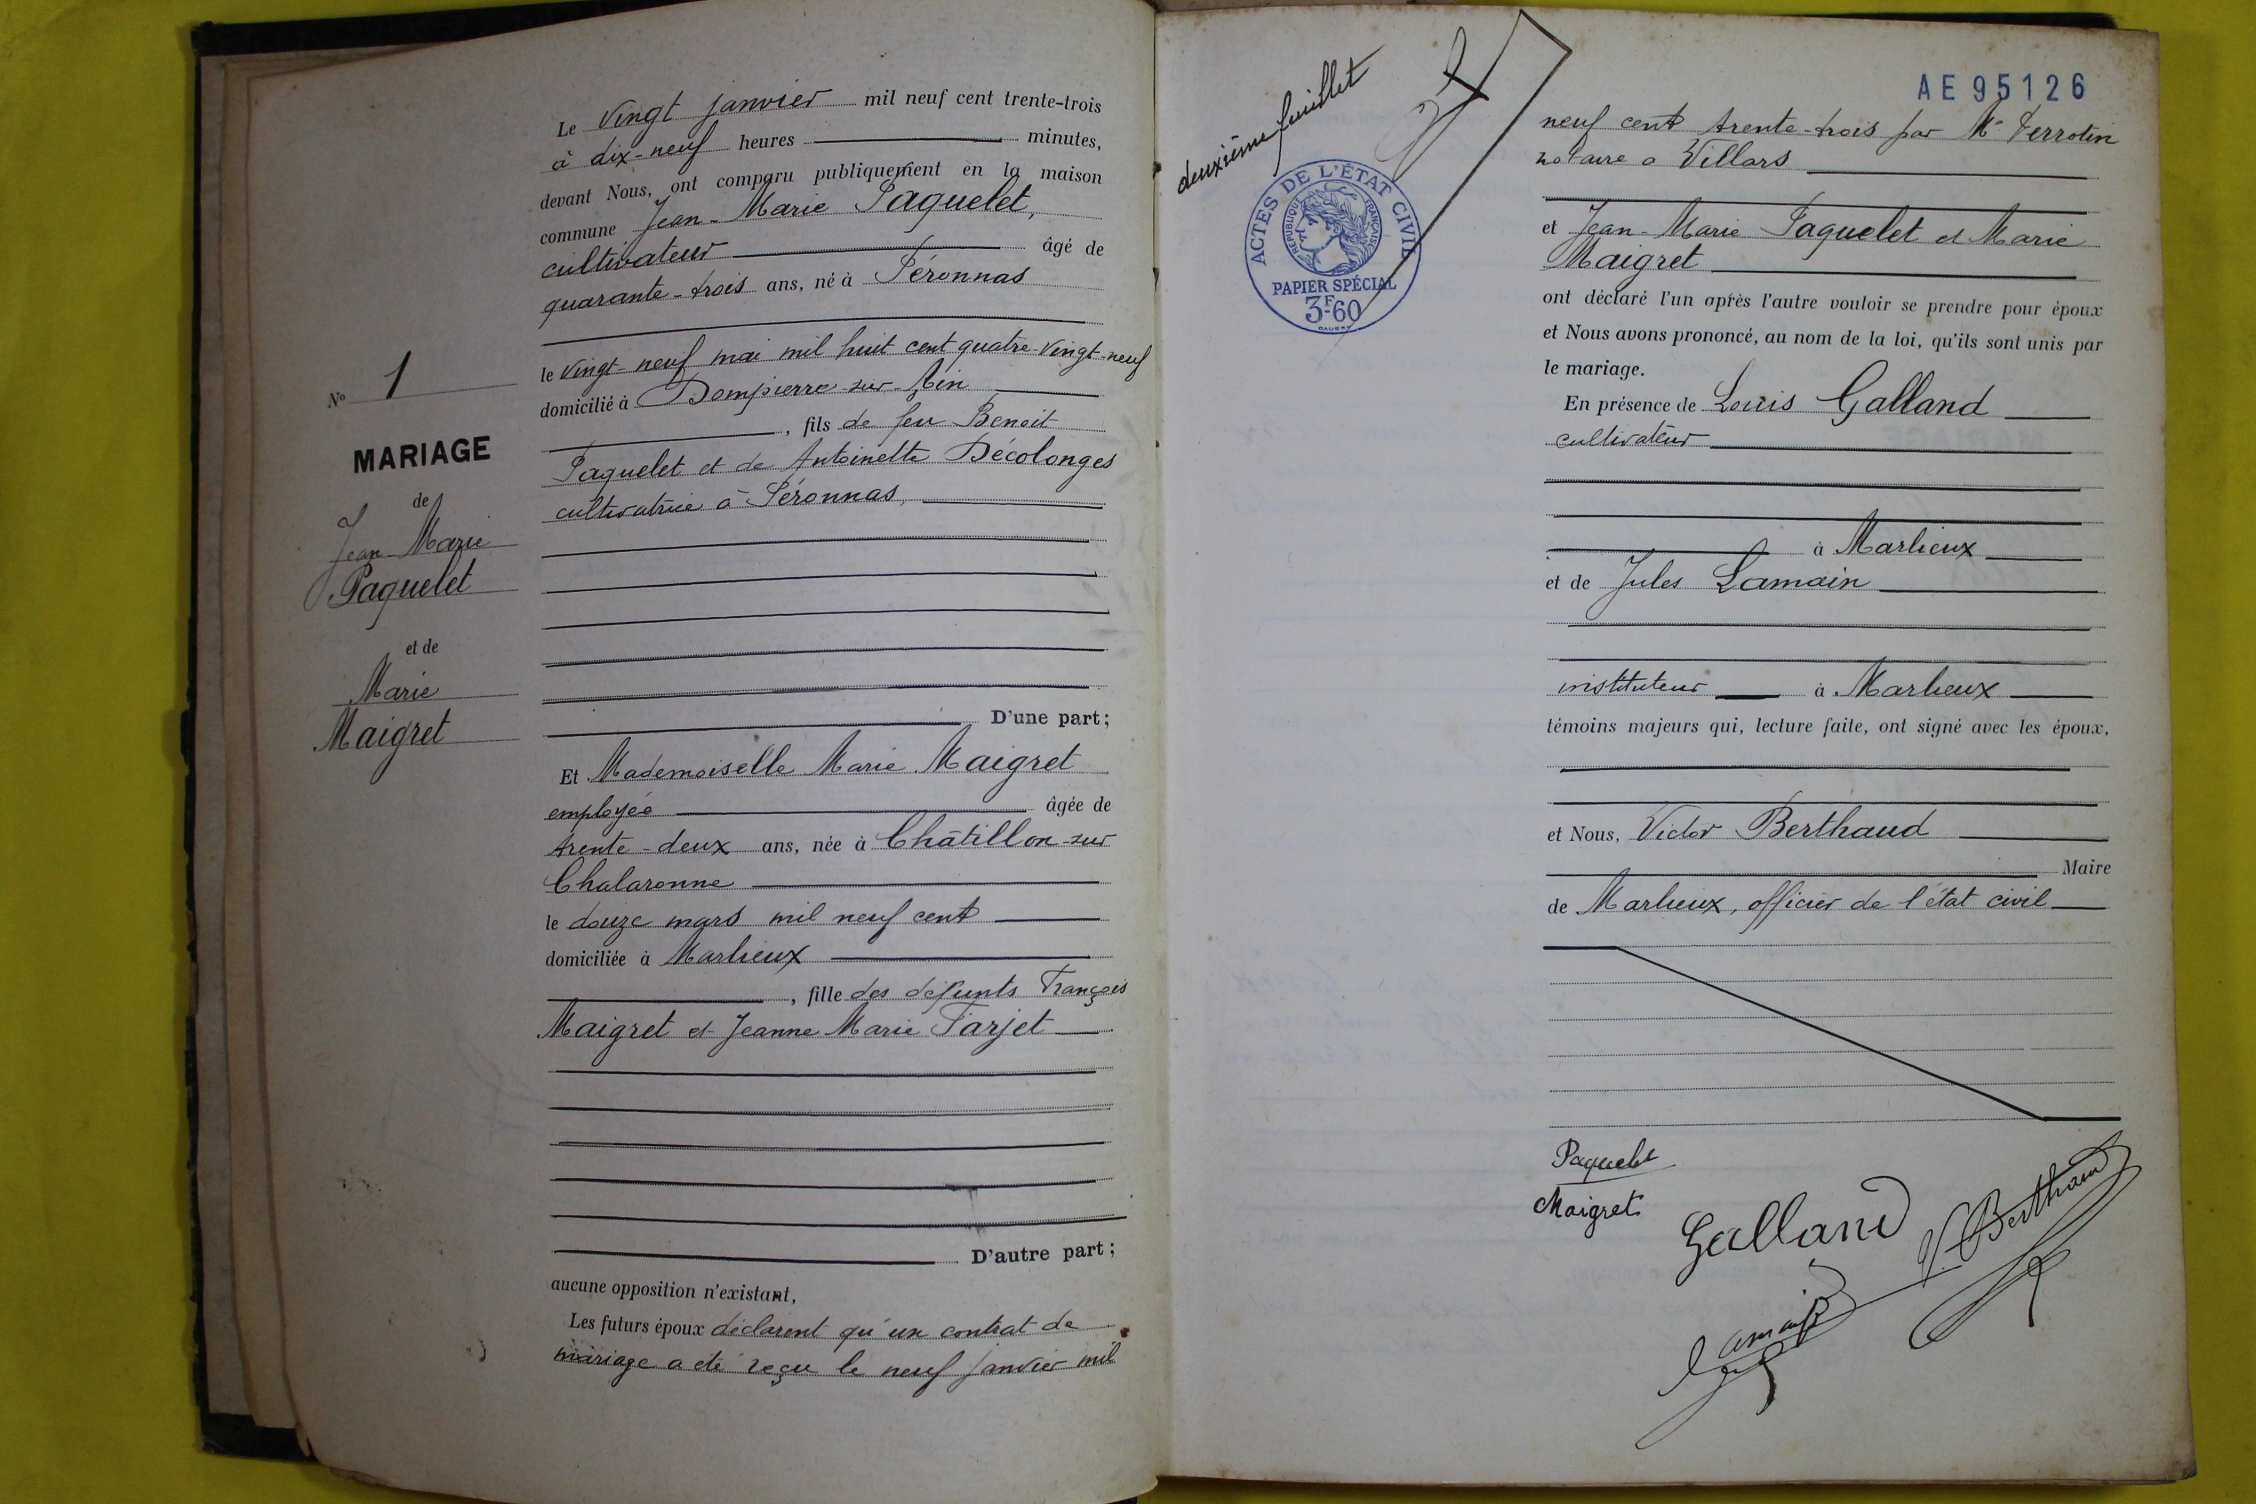 Le vingt janvier mil neuf cent trente-trois
à dix-neuf heures minutes,
devant Nous, ont comparu publiquement en la maison
commune Jean-Marie Paquelet,
cultivateur âgé de
quarante-trois ans, né à Péronnas
le vingt-neuf mai mil huit cent quatre-vingt-neuf
domicilié à Dompierre-sur-Ain
, fils de feu Benoit
Paquelet et de Antoinette Décolonges
cultivatrice à Péronnas,
D'une part;
Nº 1
MARIAGE
de
Jean Marie
Paquelet
et de
Marie
Maigret
Et Mademoiselle Marie Maigret
employée âgée de
trente-deux ans, née à Châtillon-sur
Chalaronne
le douze mars mil neuf cent
domiciliée à Marlieux
, fille des défunts François
Maigret et Jeanne Marie Farjet
D'autre part;
aucune opposition n'existant,
Les futurs époux déclarent qu'un contrat de
mariage a été reçu le neuf janvier mil
deuxième feuillet
ACTES DE L'ÉTAT CIVIL
RÉPUBLIQUE FRANÇAISE
PAPIER SPÉCIAL
3F.60
AE95126
neuf cent trente-trois par Me Perrotin
notaire à Villars
et Jean-Marie Paquelet et Marie
Maigret
ont déclaré l'un après l'autre vouloir se prendre pour époux
et Nous avons prononcé, au nom de la loi, qu'ils sont unis par
le mariage.
En présence de Louis Galland
cultivateur
à Marlieux
et de Jules Lamain
instituteur à Marlieux
témoins majeurs qui, lecture faite, ont signé avec les époux,
et Nous, Victor Berthaud
Maire
de Marlieux, officier de l'état civil
Paquelet
Maigret
Galland
V. Berthaud
Lamain